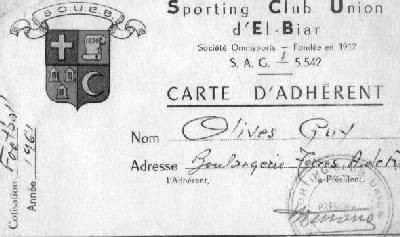 S.C.U.E.B.
Sporting Club Union
d'El-Biar
Société Omnisports — Fondée en 1912
S. A. G. I 5.542
CARTE D'ADHÉRENT
Nom Olives Guy
Adresse Boulangerie
l'Adhérent, Le Président,
Cotisation Football
Année 1961
PRÉSIDENT